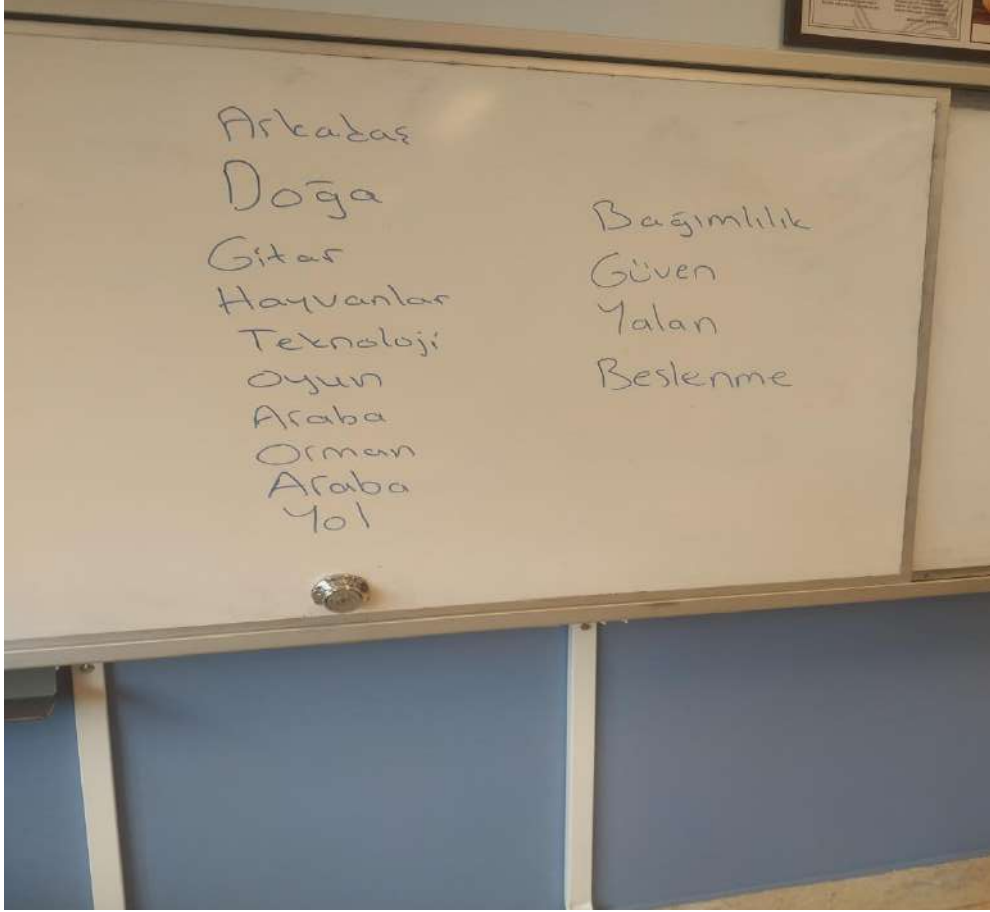 Arkadaş
Doğa
Gitar
Hayvanlar
Teknoloji
Oyun
Araba
Orman
Araba
Yol
Bağımlılık
Güven
Yalan
Beslenme